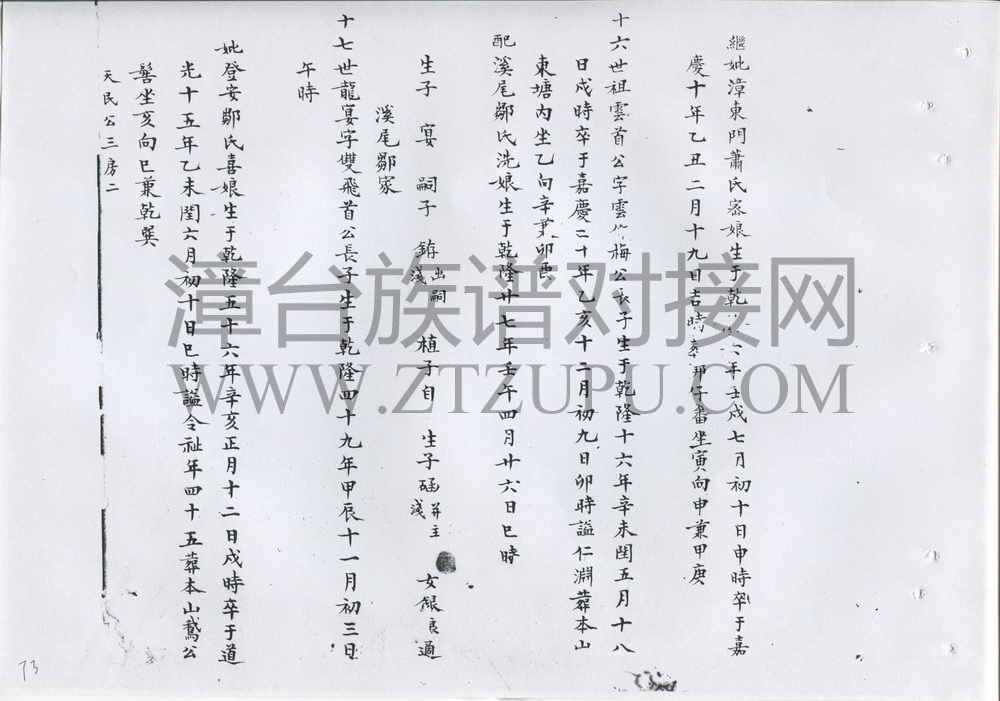 繼妣漳東門蕭氏密娘生于乾年壬戍七月初十日申時卒于嘉
慶十年乙丑二月十九日吉時坐寅向申兼甲庚
十六世祖雲首公字雲梅公長子生于乾隆十六年辛未閏五月十八
日戍時卒于嘉慶二十年乙亥十二月初九日卯時謚仁淵葬本山
東塘內坐乙向辛兼卯酉
配溪尾鄒氏洗娘生于乾隆廿七年壬午四月廿六日巳時
生子 宴 嗣子 銌出嗣淺 植子自 生子硧并主淺 女銀良適
溪尾鄒家
十七世龍宴字雙飛首公長子生于乾隆四十九年甲辰十一月初三日
午時
妣登安鄒氏喜娘生于乾隆五十六年辛亥正月十二日戍時卒于道
光十五年乙未閏六月初十日巳時謚令祉年四十五葬本山鵝公
髻坐亥向巳兼乾巽
天民公三房二
73
漳台族谱对接网
WWW.ZTZUPU.COM